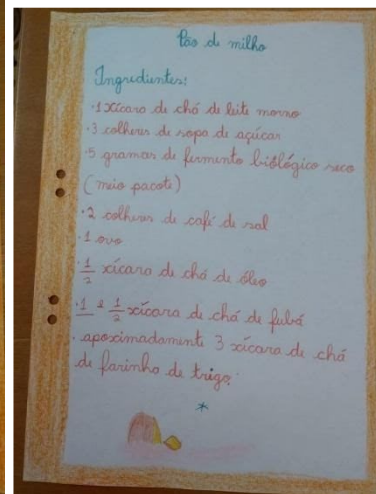 Pão de milho
Ingredientes:
·1 xícara de chá de leite morno
·3 colheres de sopa de açúcar
·5 gramas de fermento biológico seco
(meio pacote)
·2 colheres de café de sal
·1 ovo
·1/2 xícara de chá de óleo
·1 e 1/2 xícara de chá de fubá
·aproximadamente 3 xícara de chá
de farinha de trigo.
*